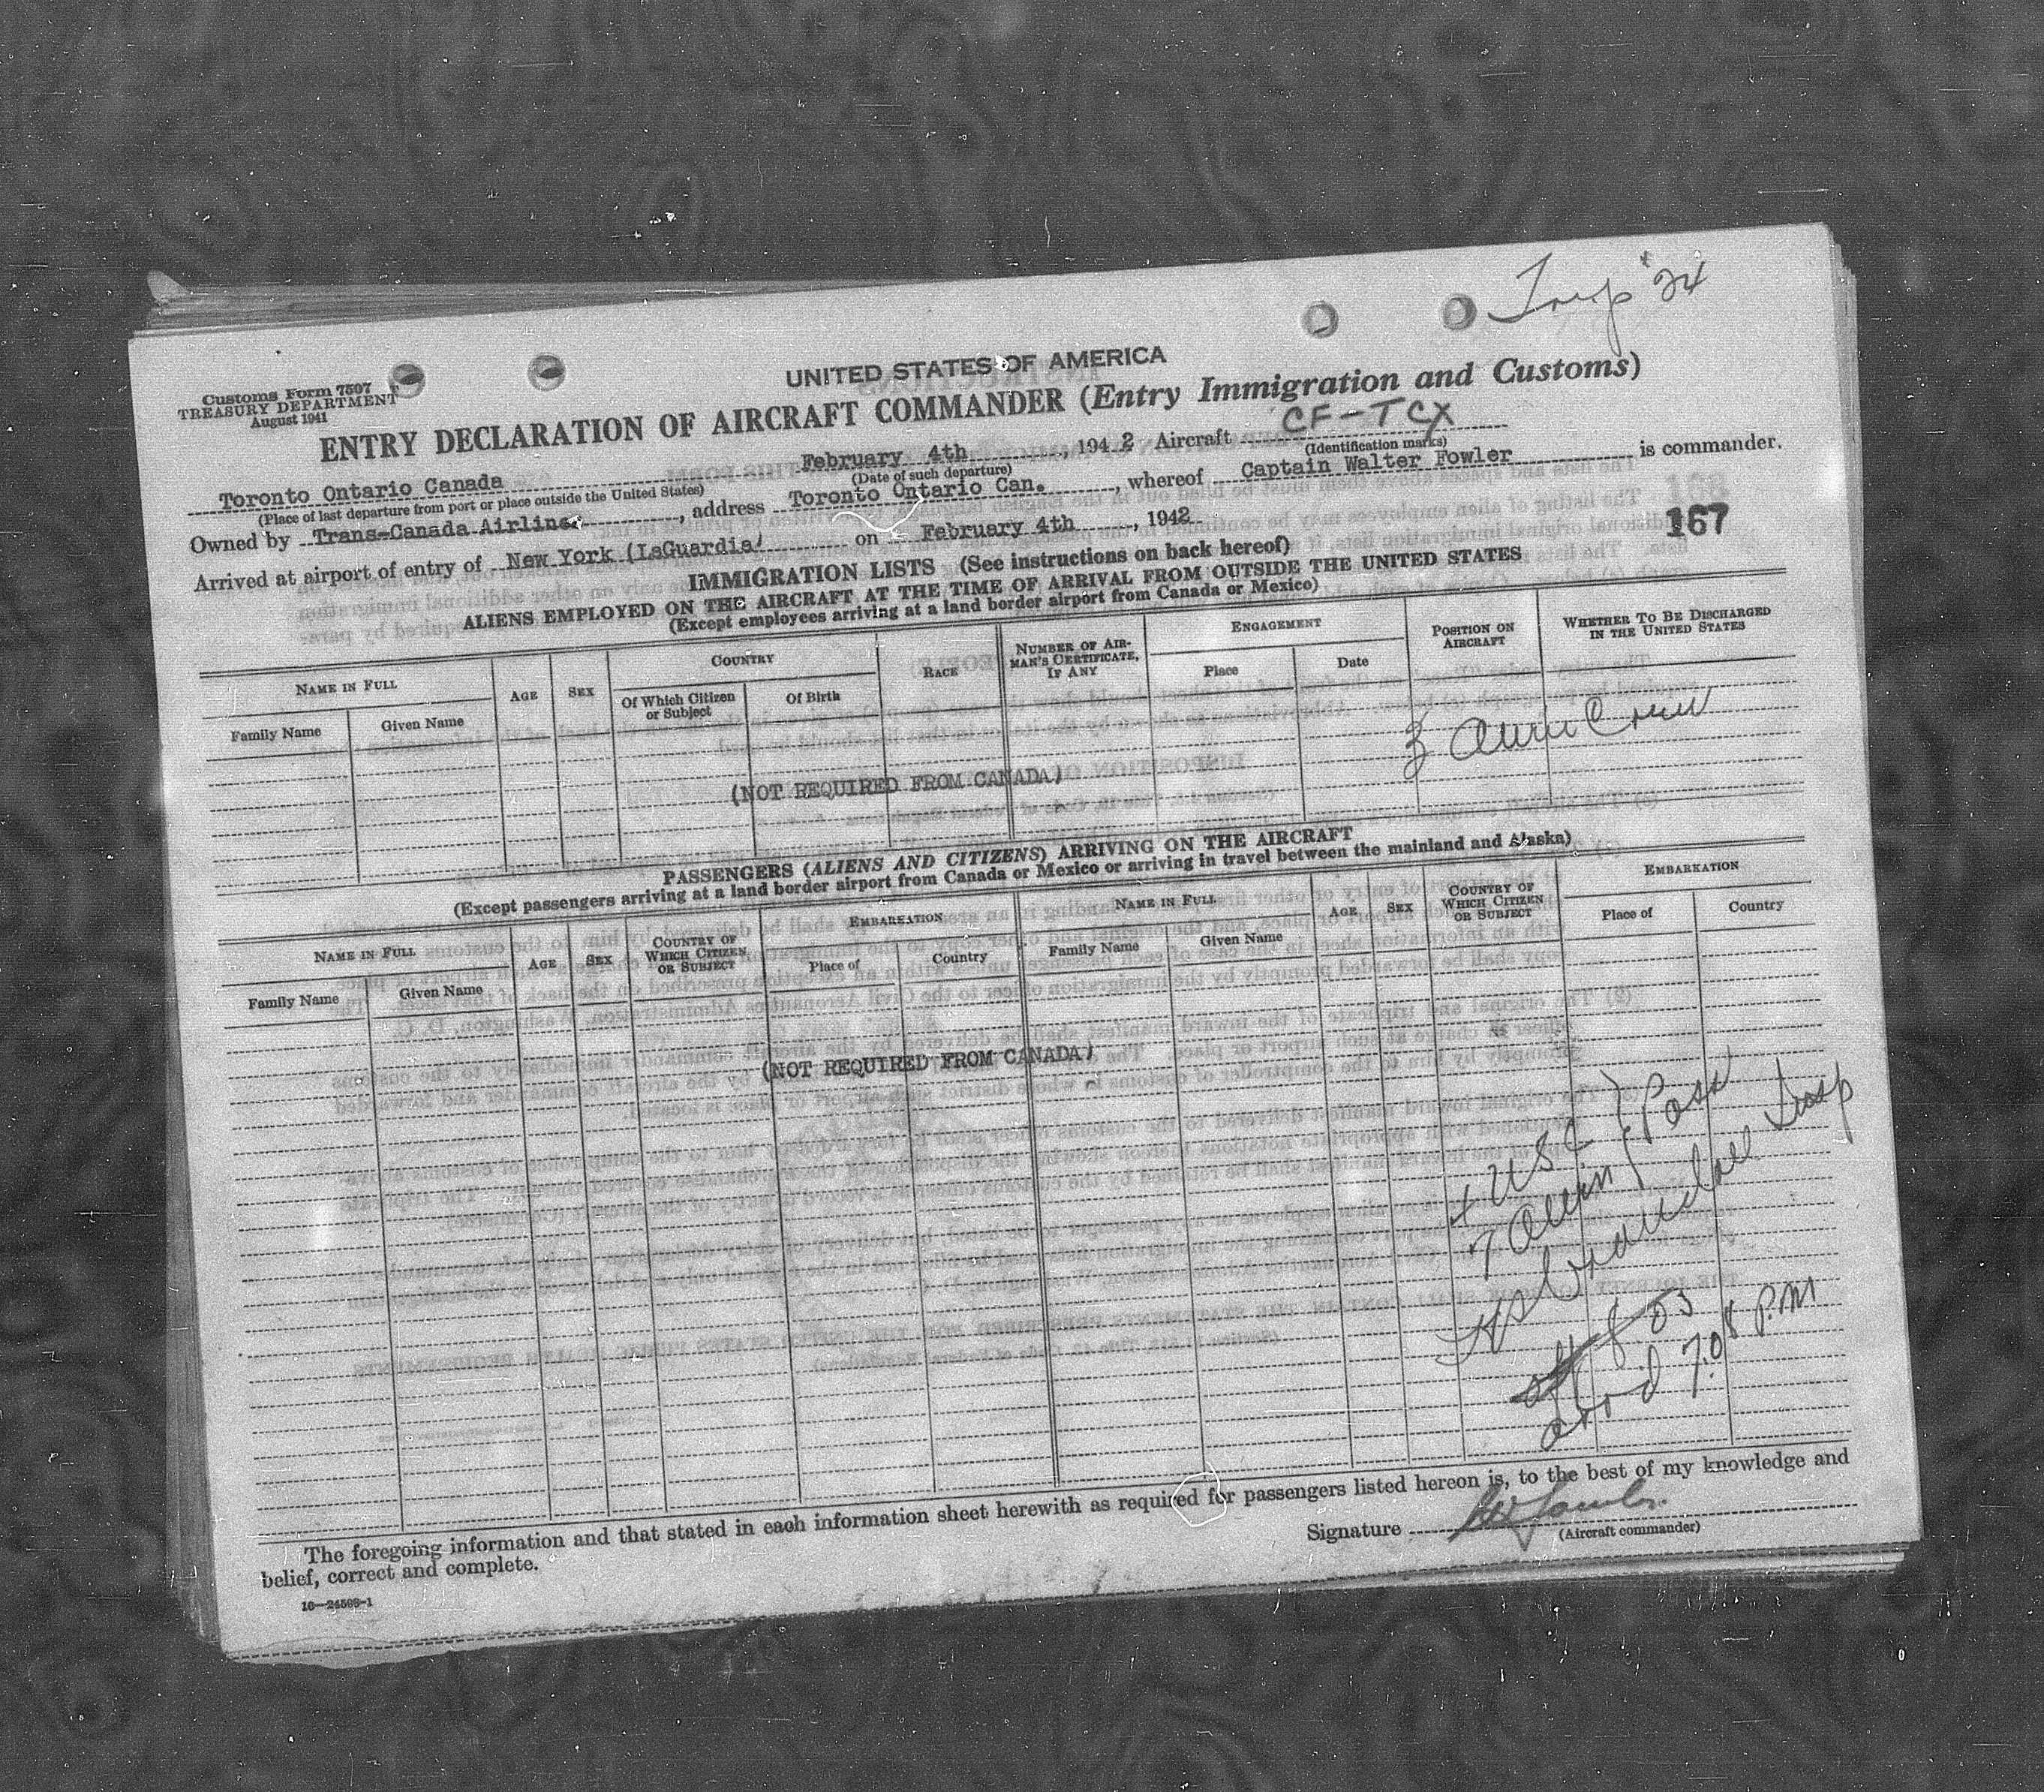 Trip #24
Customs Form 7507
TREASURY DEPARTMENT
August 1941
UNITED STATES OF AMERICA
ENTRY DECLARATION OF AIRCRAFT COMMANDER (Entry Immigration and Customs)
Toronto Ontario Canada February 4th, 1942 Aircraft CF-TCX
(Place of last departure from port or place outside the United States) (Date of such departure) (Identification marks)
Owned by Trans-Canada Airlines, address Toronto Ontario Can., whereof Captain Walter Fowler is commander.
Arrived at airport of entry of New York (LaGuardia) on February 4th, 1942
167
IMMIGRATION LISTS (See instructions on back hereof)
ALIENS EMPLOYED ON THE AIRCRAFT AT THE TIME OF ARRIVAL FROM OUTSIDE THE UNITED STATES
(Except employees arriving at a land border airport from Canada or Mexico)
NAME IN FULL
Family Name
Given Name
AGE
SEX
COUNTRY
Of Which Citizen or Subject
Of Birth
RACE
NUMBER OF AIRMAN'S CERTIFICATE, IF ANY
ENGAGEMENT
Place
Date
POSITION ON AIRCRAFT
WHETHER TO BE DISCHARGED IN THE UNITED STATES
3 Alien Crew
(NOT REQUIRED FROM CANADA)
PASSENGERS (ALIENS AND CITIZENS) ARRIVING ON THE AIRCRAFT
(Except passengers arriving at a land border airport from Canada or Mexico or arriving in travel between the mainland and Alaska)
NAME IN FULL
Family Name
Given Name
AGE
SEX
COUNTRY OF WHICH CITIZEN OR SUBJECT
EMBARKATION
Place of
Country
NAME IN FULL
Family Name
Given Name
AGE
SEX
COUNTRY OF WHICH CITIZEN OR SUBJECT
EMBARKATION
Place of
Country
(NOT REQUIRED FROM CANADA)
USC } Pass
7 Alien
Insp
arr'd 7.08 P.M
The foregoing information and that stated in each information sheet herewith as required for passengers listed hereon is, to the best of my knowledge and
belief, correct and complete.
Signature
(Aircraft commander)
16—24566-1